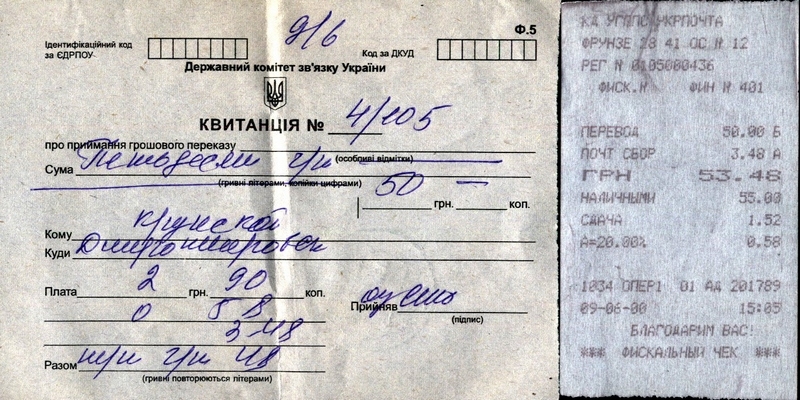 Ідентифікаційний код
за ЄДРПОУ
9/6
Код за ДКУД
Ф.5
Державний комітет зв'язку України
КВИТАНЦІЯ № 4/105
про приймання грошового переказу
(особливі відмітки)
Сума грн
(гривні літерами, копійки цифрами)
50 — грн. коп.
Кому
Куди
Плата 2 грн. 90 коп.
0 58
3 48
Прийняв
(підпис)
Разом три грн 48
(гривні повторюються літерами)
КД УГППС УКРПОЧТА
ФРУНЗЕ 28 41 ОС N 12
РЕГ N 0105080436
ФИСК.N ФИН N 401
ПЕРЕВОД 50.00 Б
ПОЧТ СБОР 3.48 А
ГРН 53.48
НАЛИЧНЫМИ 55.00
СДАЧА 1.52
А=20.00% 0.58
1034 ОПЕР1 01 АД 201789
09-06-00 15:05
БЛАГОДАРИМ ВАС!
*** ФИСКАЛЬНЫЙ ЧЕК ***